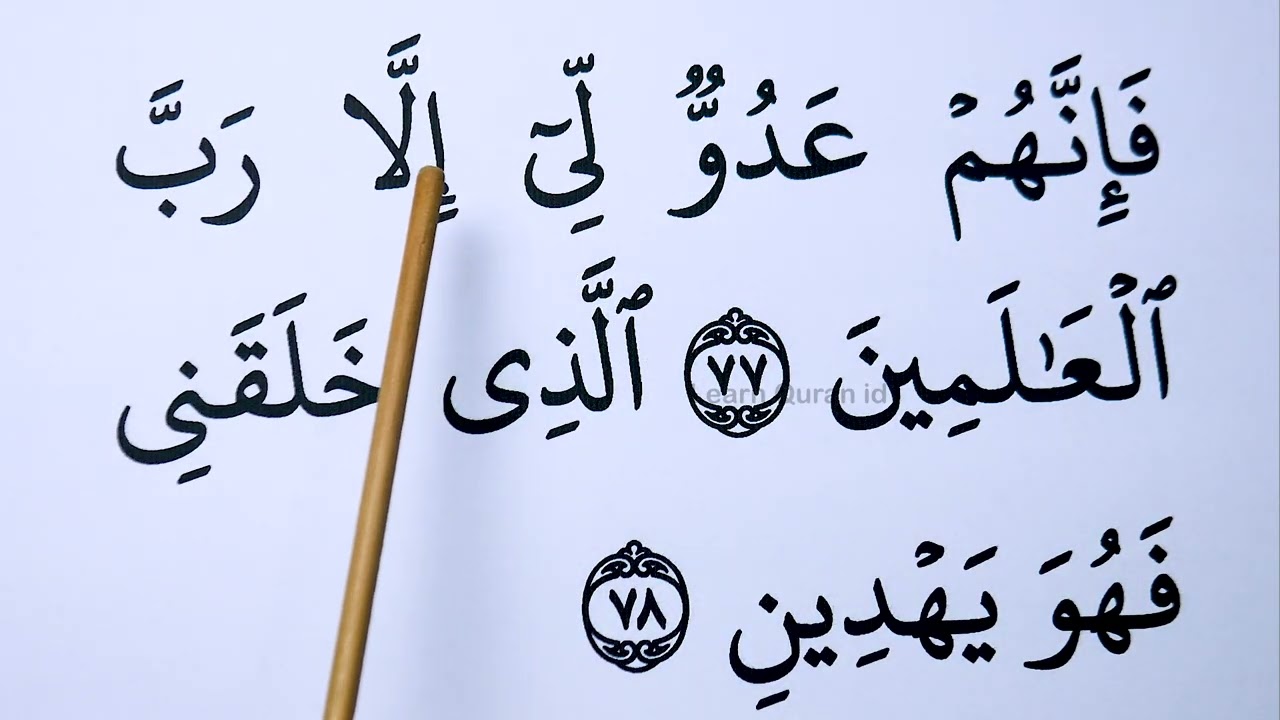 فَإِنَّهُمۡ عَدُوࣱّ لِّیۤ إِلَّا رَبَّ
ٱلۡعَـٰلَمِینَ ٧٧ ٱلَّذِی خَلَقَنِی
فَهُوَ یَهۡدِینِ ٧٨
Learn Quran id